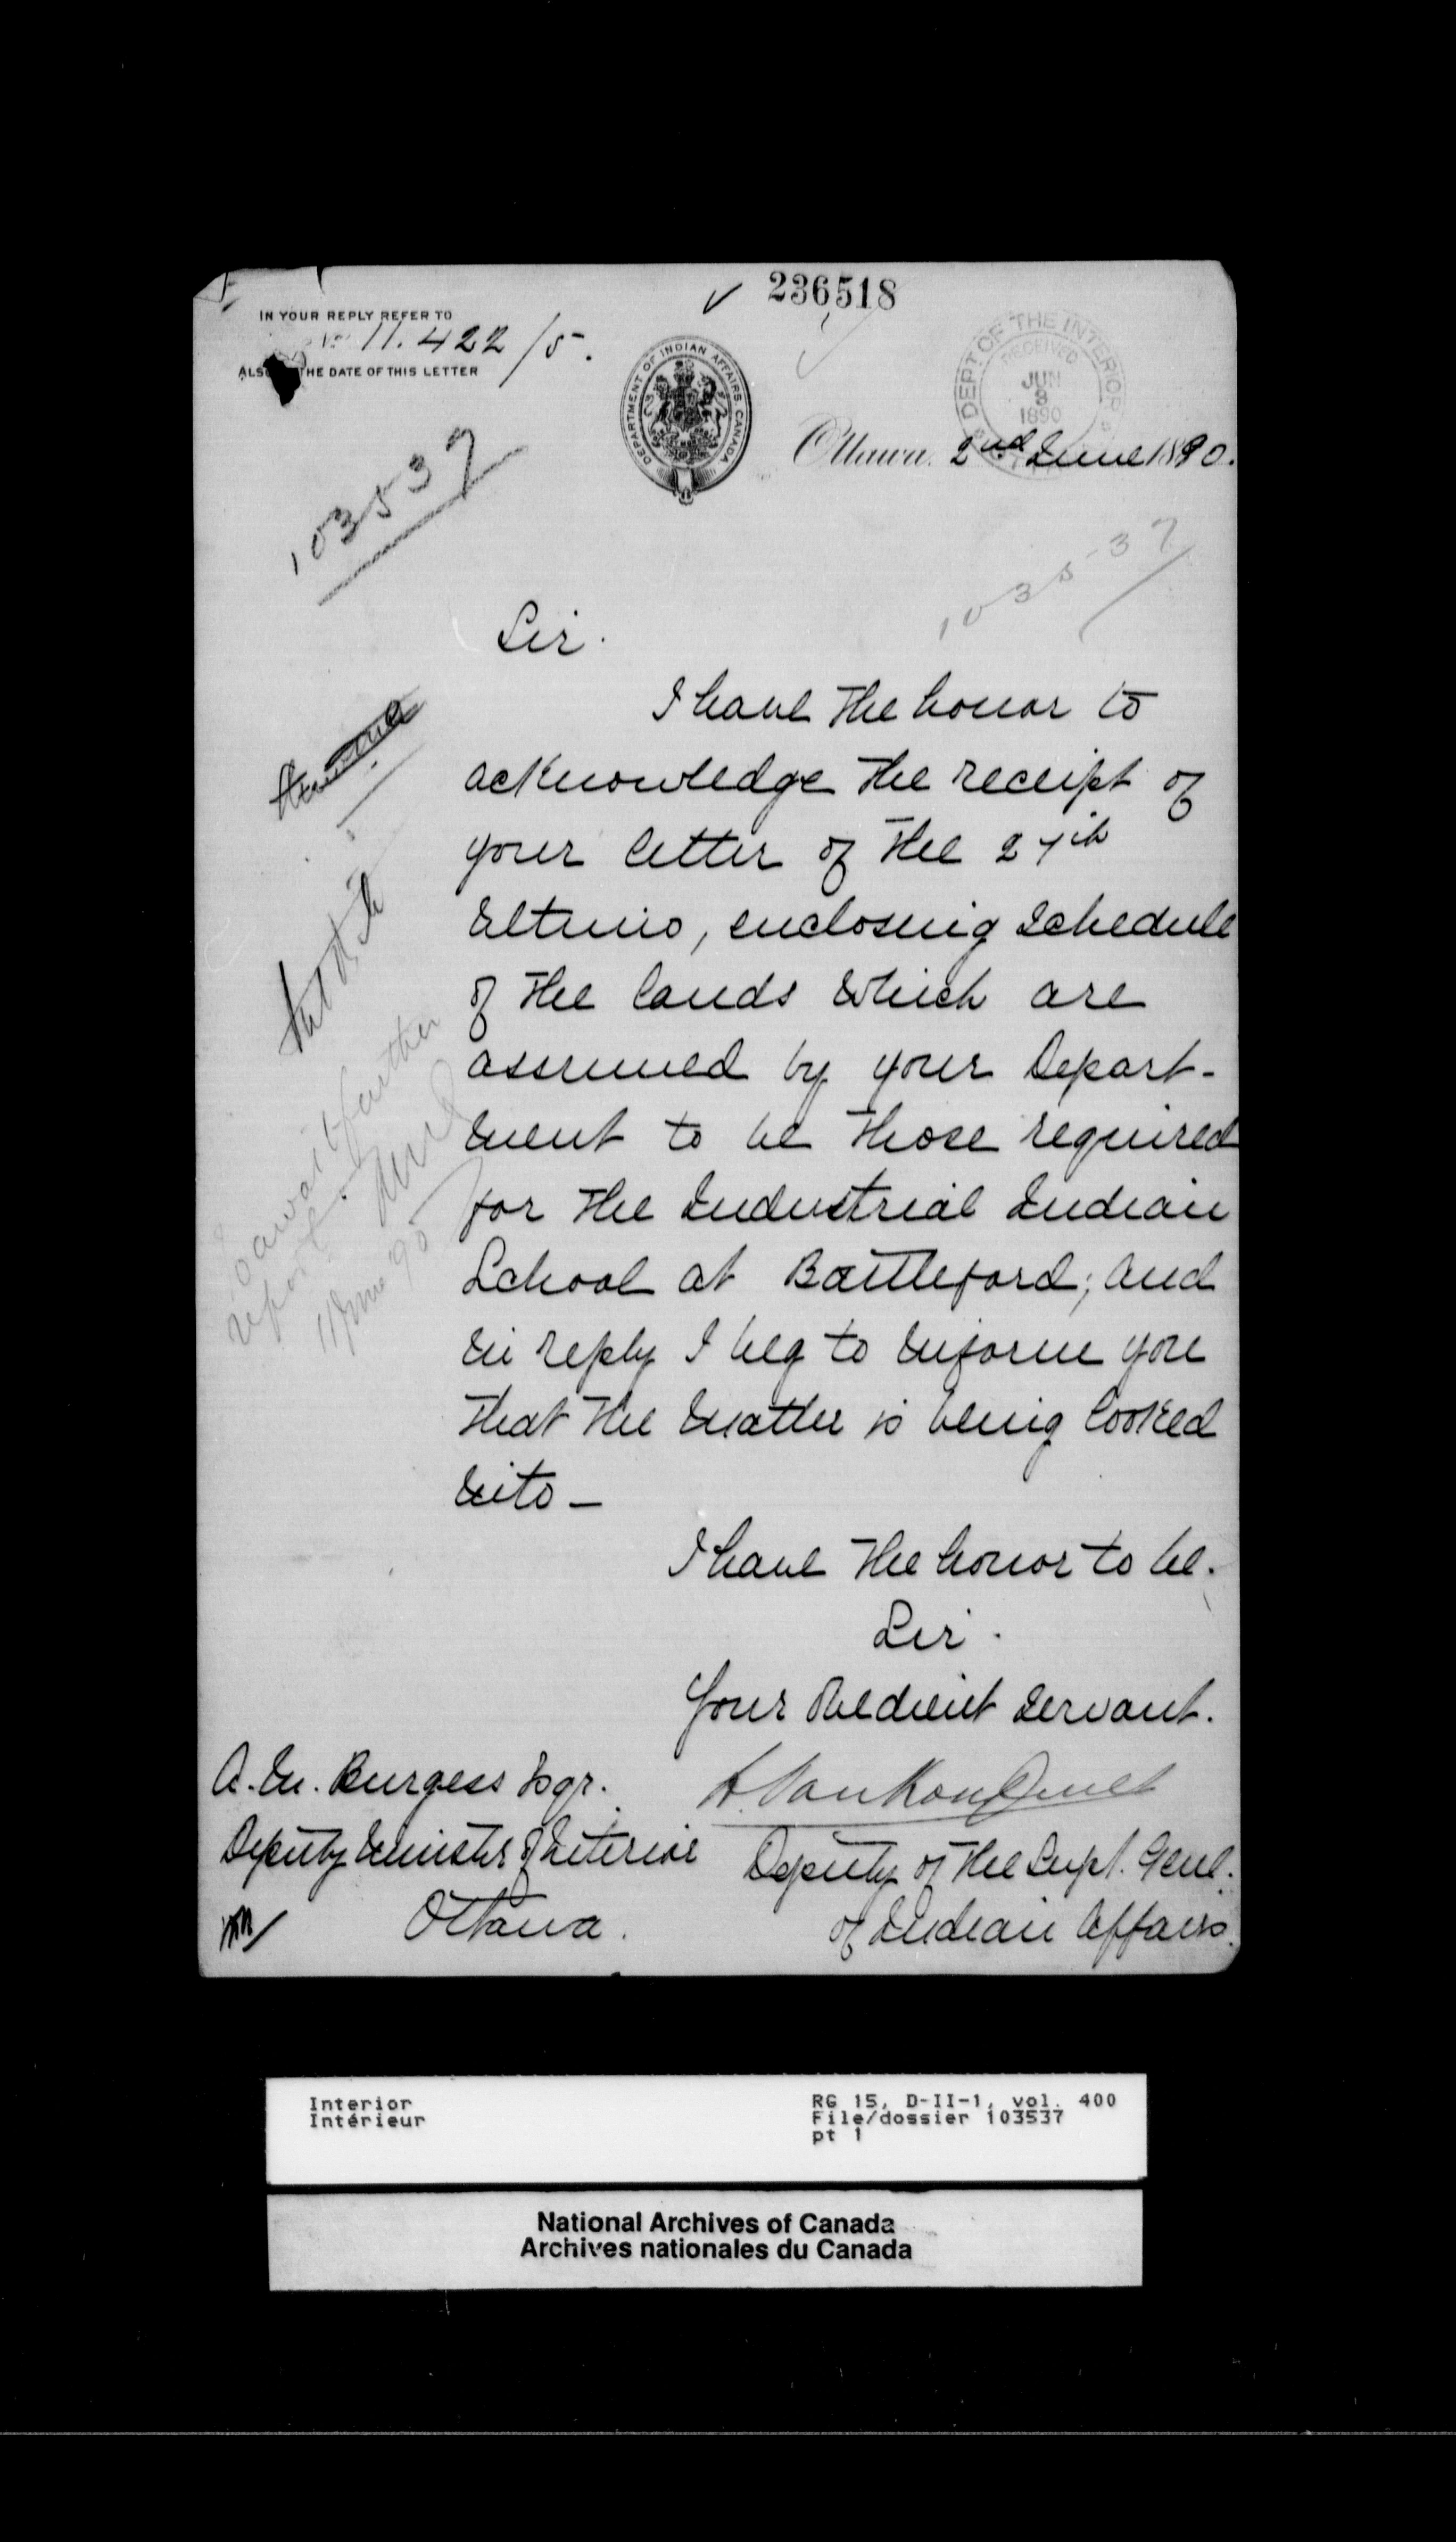 236518
IN YOUR REPLY REFER TO
No 11.422/5.
ALSO THE DATE OF THIS LETTER
DEPARTMENT OF INDIAN AFFAIRS. CANADA
DEPT OF THE INTERIOR
RECEIVED
JUN
3
1890
Ottawa. 2nd June 1890.
103537
103537
Sir.
I have the honor to
acknowledge the receipt of
your letter of the 27th
Ultimo, enclosing Schedule
of the lands which are
assumed by your Depart-
ment to be those required
for the Industrial Indian
School at Battleford; and
in reply I beg to inform you
that the matter is being looked
into –
I have the honor to be.
Sir.
Your Obedient Servant.
L. Vankoughnet
Deputy of the Supt. Genl.
of Indian Affairs.
A. M. Burgess Esqr.
Deputy Minister of Interior
Ottawa.
To await further
report.
11 June 90
Interior
Intérieur
RG 15, D-II-1, vol. 400
File/dossier 103537
pt 1
National Archives of Canada
Archives nationales du Canada